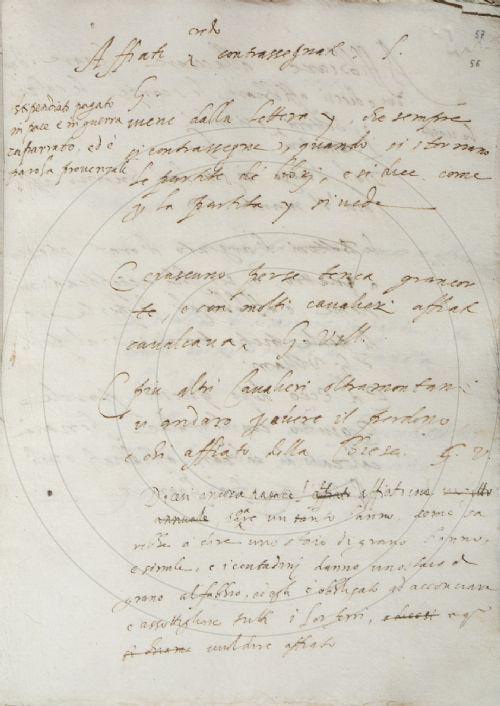 57
56
credo
Affiati contrassegnati. S.
G.
stipendiati pagato
in pace e in guerra
ed è
parola provenzale
viene dalla lettera y, che sempre
si contrassegna, quando si stornano
le partite de libri, e si dice come
p la partita y si vede
E ciascuno per se tenea gran cor
te, e con molti cavalieri affiati
cavalcava. G. Vill.
E piu altri Cavalieri oltramontani
v andaro p avere il perdono
e chi affiato della Chiesa. G. V.
Dicesi ancora
annuale un tanto l anno, come sa
rebbe a dire uno staio di grano l anno,
e simile, e i contadini danno uno staio di
grano al fabbro, et egli è obbligato ad acconciare
e assottigliare tutti i lor ferri, e q
vuol dire affiato